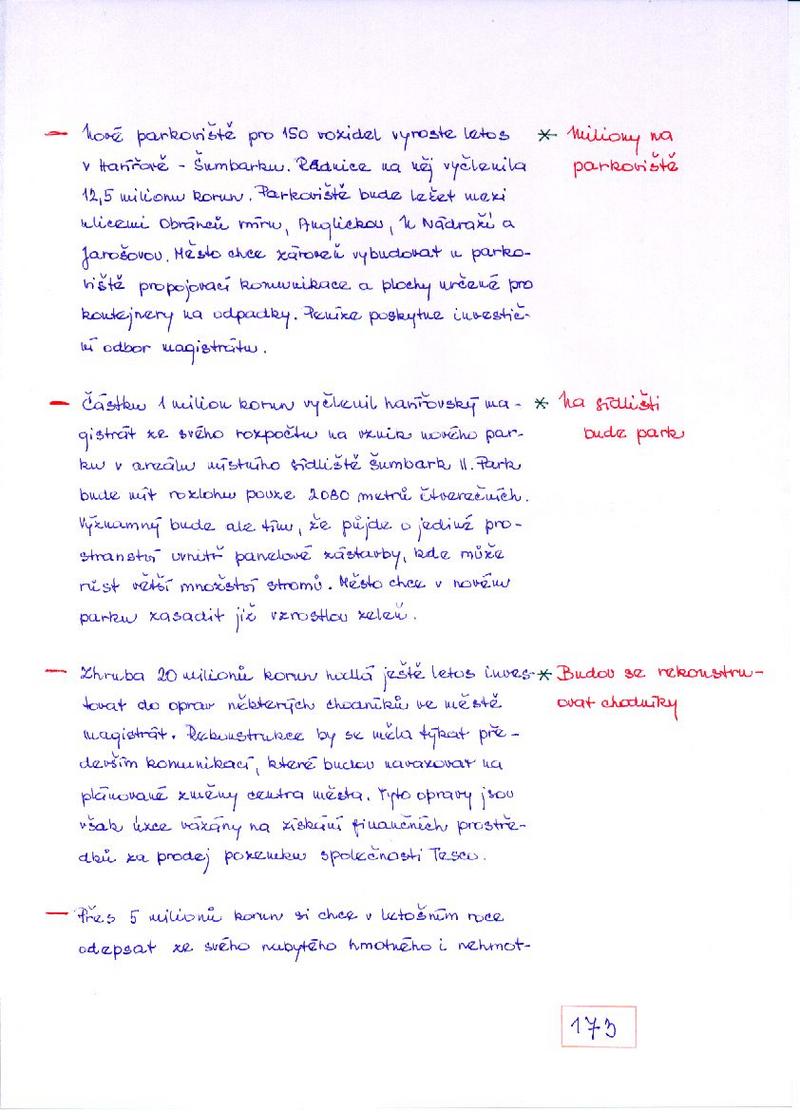 — Nové parkoviště pro 150 vozidel vyroste letos * Miliony na
v Havířově - Šumbarku. Radnice na něj vyčlenila parkoviště
12,5 milionu korun. Parkoviště bude ležet mezi
ulicemi Obránců míru, Anglickou, U Nádraží a
Jarošovou. Město chce zároveň vybudovat u parko-
viště propojovací komunikace a plochy určené pro
kontejnery na odpadky. Peníze poskytne investič-
ní odbor magistrátu.
— Částku 1 milion korun vyčlenil havířovský ma- * Na sídlišti
gistrát ze svého rozpočtu na vznik nového par- bude park
ku v areálu místního sídliště Šumbark II. Park
bude mít rozlohu pouze 2080 metrů čtverečních.
Významný bude ale tím, že půjde o jediné pro-
stranství uvnitř panelové zástavby, kde může
růst větší množství stromů. Město chce v novém
parku zasadit již vzrostlou zeleň.
— Zhruba 20 milionů korun hodlá ještě letos inves- * Budou se rekonstru-
tovat do oprav některých chodníků ve městě ovat chodníky
magistrát. Rekonstrukce by se měla týkat pře-
devším komunikací, které budou navazovat na
plánované změny centra města. Tyto opravy jsou
však úzce vázány na získání finančních prostře-
dků za prodej pozemku společnosti Tesco.
— Přes 5 milionů korun si chce v letošním roce
odepsat ze svého nabytého hmotného i nehmot-
173